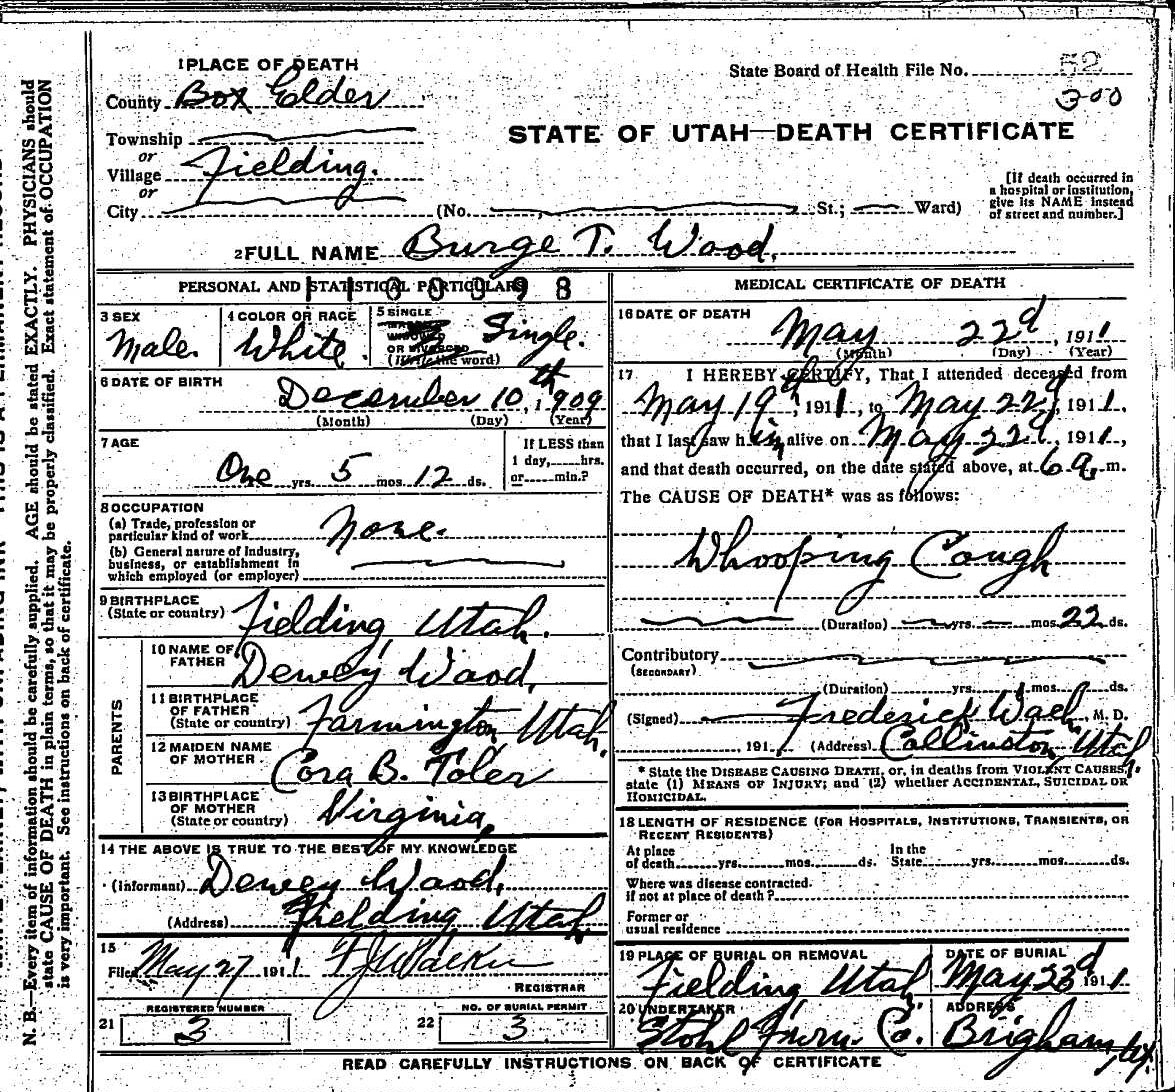 1 PLACE OF DEATH
County Box Elder
Township
or
Village Fielding.
or
City (No. St.; Ward)
State Board of Health File No. 52
300
STATE OF UTAH—DEATH CERTIFICATE
[If death occurred in
a hospital or institution,
give its NAME instead
of street and number.]
2 FULL NAME Burge T. Wood.
PERSONAL AND STATISTICAL PARTICULARS
3 SEX
Male.
4 COLOR OR RACE
White.
5 SINGLE
OR DIVORCED
(Write the word)
Single.
6 DATE OF BIRTH
December 10th, 1909
(Month) (Day) (Year)
7 AGE
One yrs. 5 mos. 12 ds.
If LESS than
1 day, hrs.
or min.?
8 OCCUPATION
(a) Trade, profession or
particular kind of work None.
(b) General nature of industry,
business, or establishment in
which employed (or employer)
9 BIRTHPLACE
(State or country) Fielding, Utah.
PARENTS
10 NAME OF
FATHER Dewey Wood,
11 BIRTHPLACE
OF FATHER
(State or country) Farmington, Utah.
12 MAIDEN NAME
OF MOTHER Cora B. Toler
13 BIRTHPLACE
OF MOTHER
(State or country) Virginia,
14 THE ABOVE IS TRUE TO THE BEST OF MY KNOWLEDGE
(Informant) Dewey Wood,
(Address) Fielding, Utah,
15
Filed May 27 1911 Walker
REGISTRAR
REGISTERED NUMBER
21 3
NO. OF BURIAL PERMIT
22 3
MEDICAL CERTIFICATE OF DEATH
16 DATE OF DEATH
May 22d, 1911
(Month) (Day) (Year)
17 I HEREBY CERTIFY, That I attended deceased from
May 19th, 1911, to May 22d, 1911,
that I last saw him alive on May 22d, 1911,
and that death occurred, on the date stated above, at 6 a. m.
The CAUSE OF DEATH* was as follows:
Whooping Cough
(Duration) yrs. mos. 22 ds.
Contributory
(SECONDARY)
(Duration) yrs. mos. ds.
(Signed) Frederick M. D.
, 191 (Address) Collinston, Utah.
* State the DISEASE CAUSING DEATH, or, in deaths from VIOLENT CAUSES,
state (1) MEANS OF INJURY; and (2) whether ACCIDENTAL, SUICIDAL OR
HOMICIDAL.
18 LENGTH OF RESIDENCE (FOR HOSPITALS, INSTITUTIONS, TRANSIENTS, OR
RECENT RESIDENTS)
At place
of death yrs. mos. ds.
In the
State yrs. mos. ds.
Where was disease contracted,
if not at place of death?
Former or
usual residence
19 PLACE OF BURIAL OR REMOVAL
Fielding Utah
DATE OF BURIAL
May 23d 1911
20 UNDERTAKER
Stohl Furn. Co.
ADDRESS
Brigham, Ut.
READ CAREFULLY INSTRUCTIONS ON BACK OF CERTIFICATE
N. B.—Every item of information should be carefully supplied. AGE should be stated EXACTLY. PHYSICIANS should
state CAUSE OF DEATH in plain terms, so that it may be properly classified. Exact statement of OCCUPATION
is very important. See instructions on back of certificate.